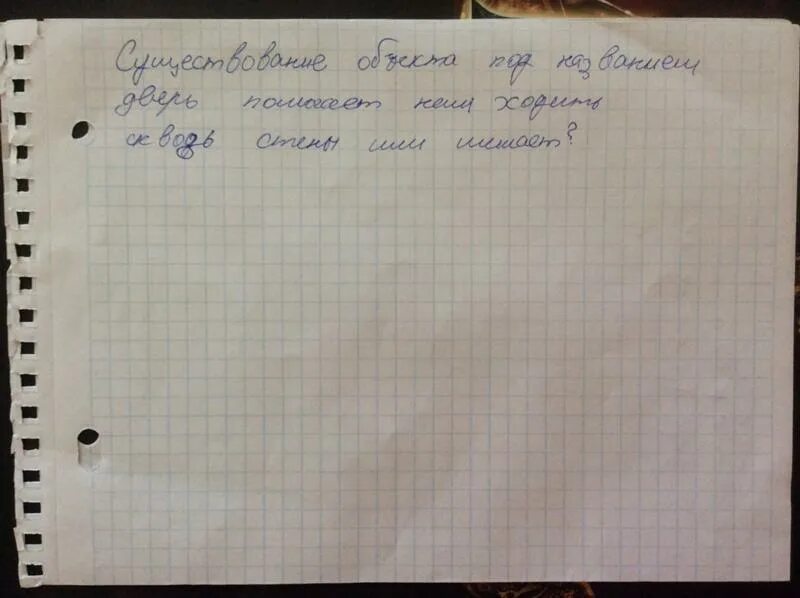 Существование объекта под названием
дверь помогает нам ходить
сквозь стены или мешает?